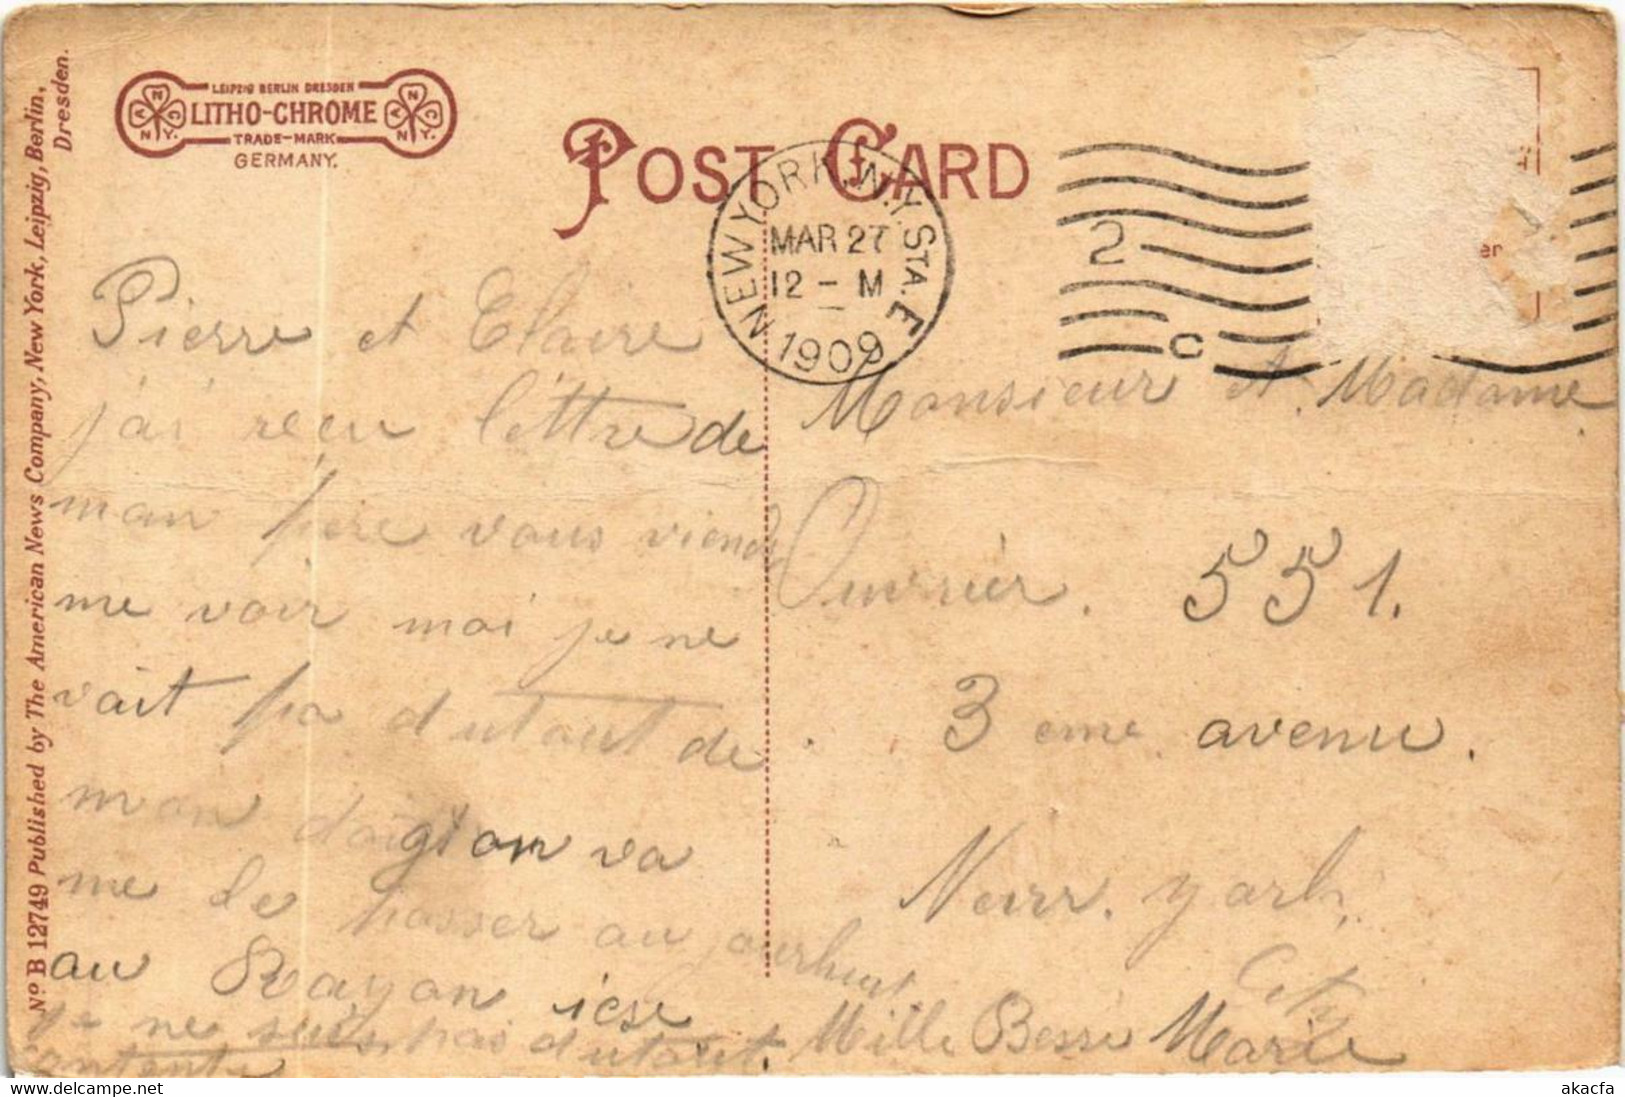 LEIPZIG BERLIN DRESDEN
LITHO-CHROME
TRADE-MARK
GERMANY.
POST CARD
NEW YORK, N.Y. STA. E
MAR 27
12 - M
1909
2
C
Nº B 12749 Published by The American News Company, New York, Leipzig, Berlin,
Dresden.
Pierre et Claire
j'ai reçu lettre de
mon père vous viende
me voir moi je ne
vait pa dutout de
mon va
me le passer au jourhui
au Rayon icse
je ne suis pas dutout
contente
Monsieur et Madame
Ouvrier. 551.
3 eme avenu.
Neuv. york.
City
Mille Besse Marie
akacfa